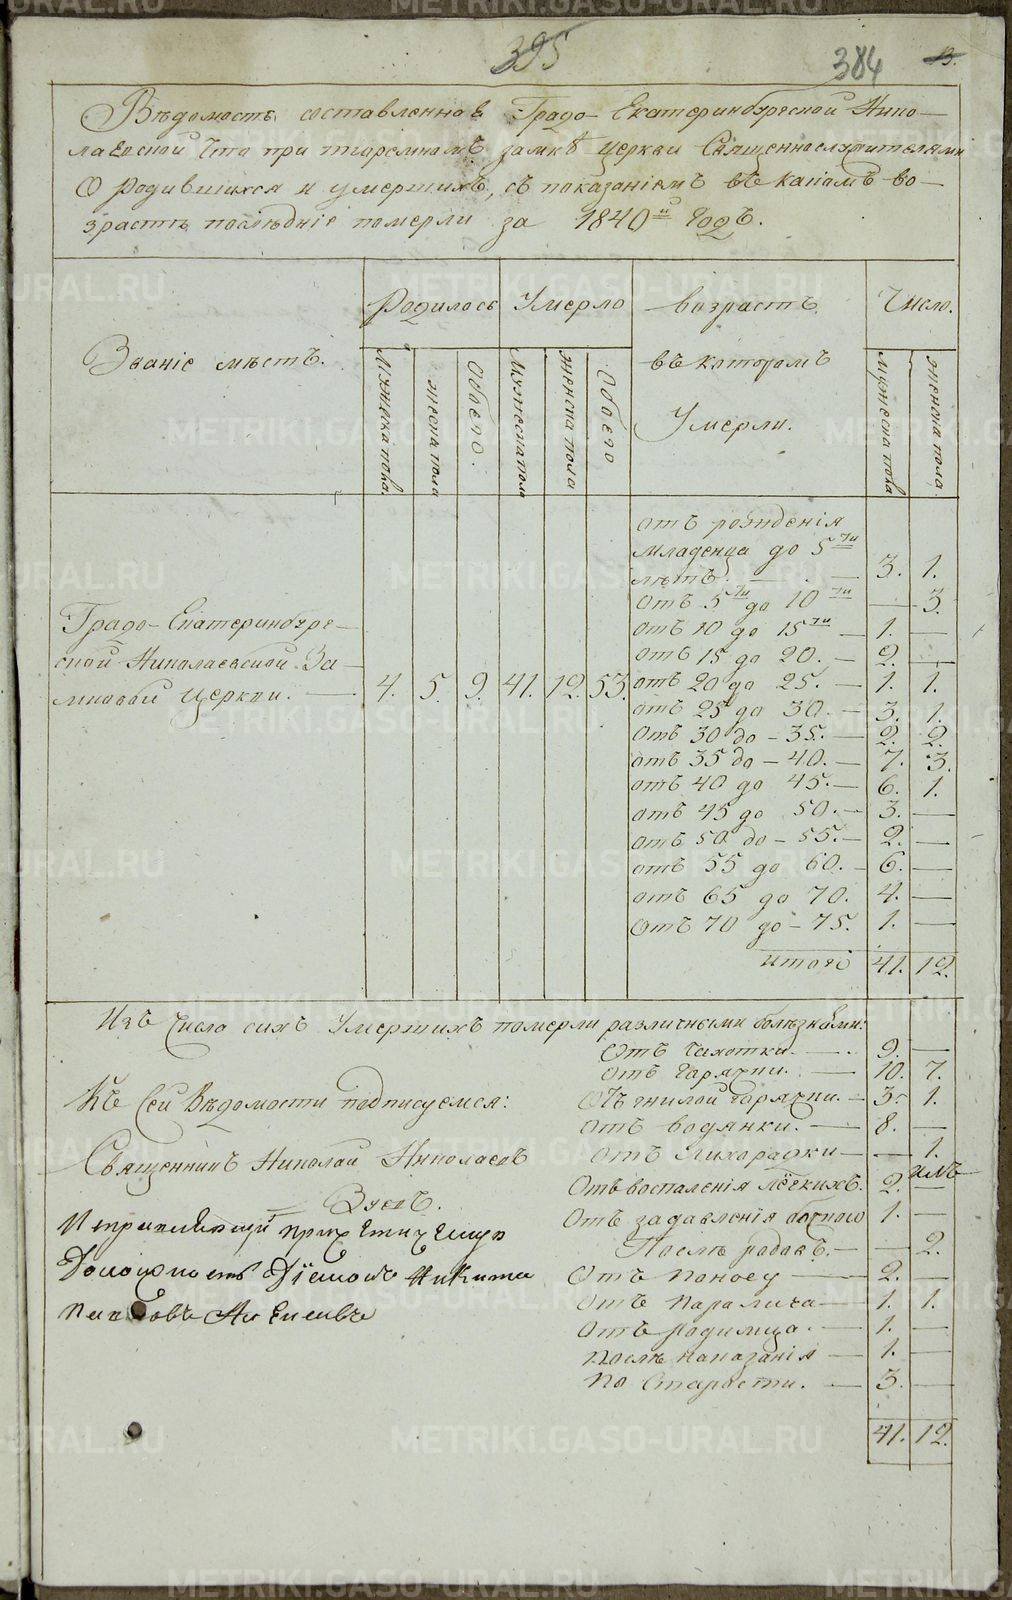 395
384
Вѣдомость составленная Градо-Екатеринбургской Нико-
лаевской что при тюремномъ замкѣ церкви Священнослужителями
О родившихся и умершихъ, съ показаніемъ въ какомъ во-
зрастѣ послѣдніе померли за 1840й Годъ.
Званіе мѣстъ.
Родилось
Умерло
Возрастъ
въ которомъ
Умерли.
Число.
Мужеска пола
женска пола
Обоего.
Мужеска пола
женска пола
Обоего
мужеска пола
женска пола
Градо-Екатеринбург-
ской Николаевской За-
мковой церкви. 4. 5. 9. 41. 12. 53.
отъ рожденія
младенца до 5ти
лѣтъ. — 3. 1.
отъ 5ти до 10ти — 3.
отъ 10 до 15ти — 1. —
отъ 15 до 20. — 2. —
отъ 20 до 25. — 1. 1.
отъ 25 до 30. — 3. 1.
отъ 30 до — 35. — 2. 2.
отъ 35 до — 40. — 7. 3.
отъ 40 до 45. — 6. 1.
отъ 45 до 50. — 3. —
отъ 50 до — 55. — 2. —
отъ 55 до 60. — 6. —
отъ 65 до 70. 4. —
отъ 70 до — 75. 1. —
итого 41. 12.
Изъ числа сихъ Умершихъ померли различными болѣзнями:
Отъ Чахотки. — 9. —
отъ Горячки. — 10. 7.
Отъ гнилой горячки. — 3. 1.
отъ водянки. — 8. —
отъ Лихорадки — — 1.
Отъ воспаленія лёгкихъ. 2. —
Отъ задавленія 1. —
Послѣ родовъ. — — 2.
Отъ поносу — 2. —
Отъ паралича — 1. 1.
отъ родимца. — 1. —
послѣ наказанія — 1. —
по Старости. — 3. —
41. 12.
Къ Сей Вѣдомости подписуемся:
Священникъ Николай Николаевъ
Исправляющій
Должность Дьячка Никита
METRIKI.GASO-URAL.RU